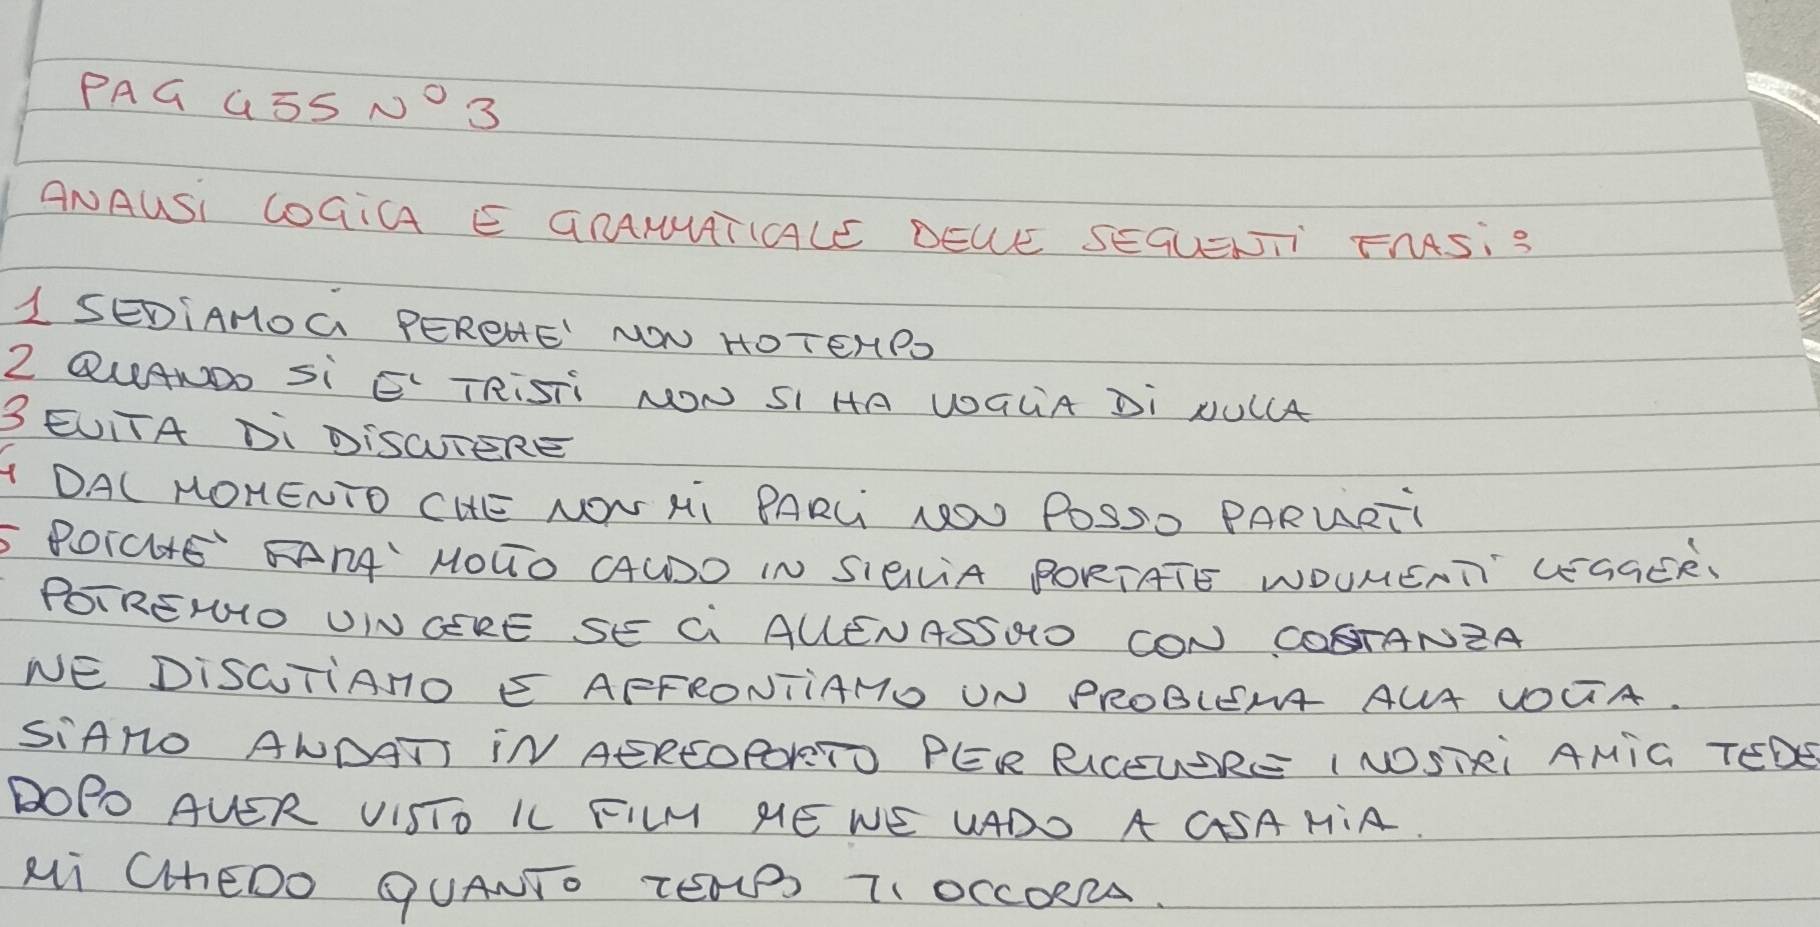 PAG 455 N° 3
ANALISI LOGICA E GRAMMATICALE DELLE SEGUENTI FRASI:
1 SEDIAMOCI PERCHE' NON HO TEMPO
2 QUANDO SI E' TRISTI NON SI HA VOGLIA DI NULLA
3 EVITA DI DISCUTERE
4 DAL MOMENTO CHE NON MI PARLI NON POSSO PARLARTI
5 POICHE' FARA' MOLTO CALDO IN SICILIA PORTATE INDUMENTI LEGGERI
POTREMMO VINCERE SE CI ALLENASSIMO CON COSTANZA
NE DISCUTIAMO E AFFRONTIAMO UN PROBLEMA ALLA VOLTA.
SIAMO ANDATI IN AEREOPORTO PER RICEVERE I NOSTRI AMICI TEDE
DOPO AVER VISTO IL FILM ME NE VADO A CASA MIA.
MI CHIEDO QUANTO TEMPO TI OCCORRA.